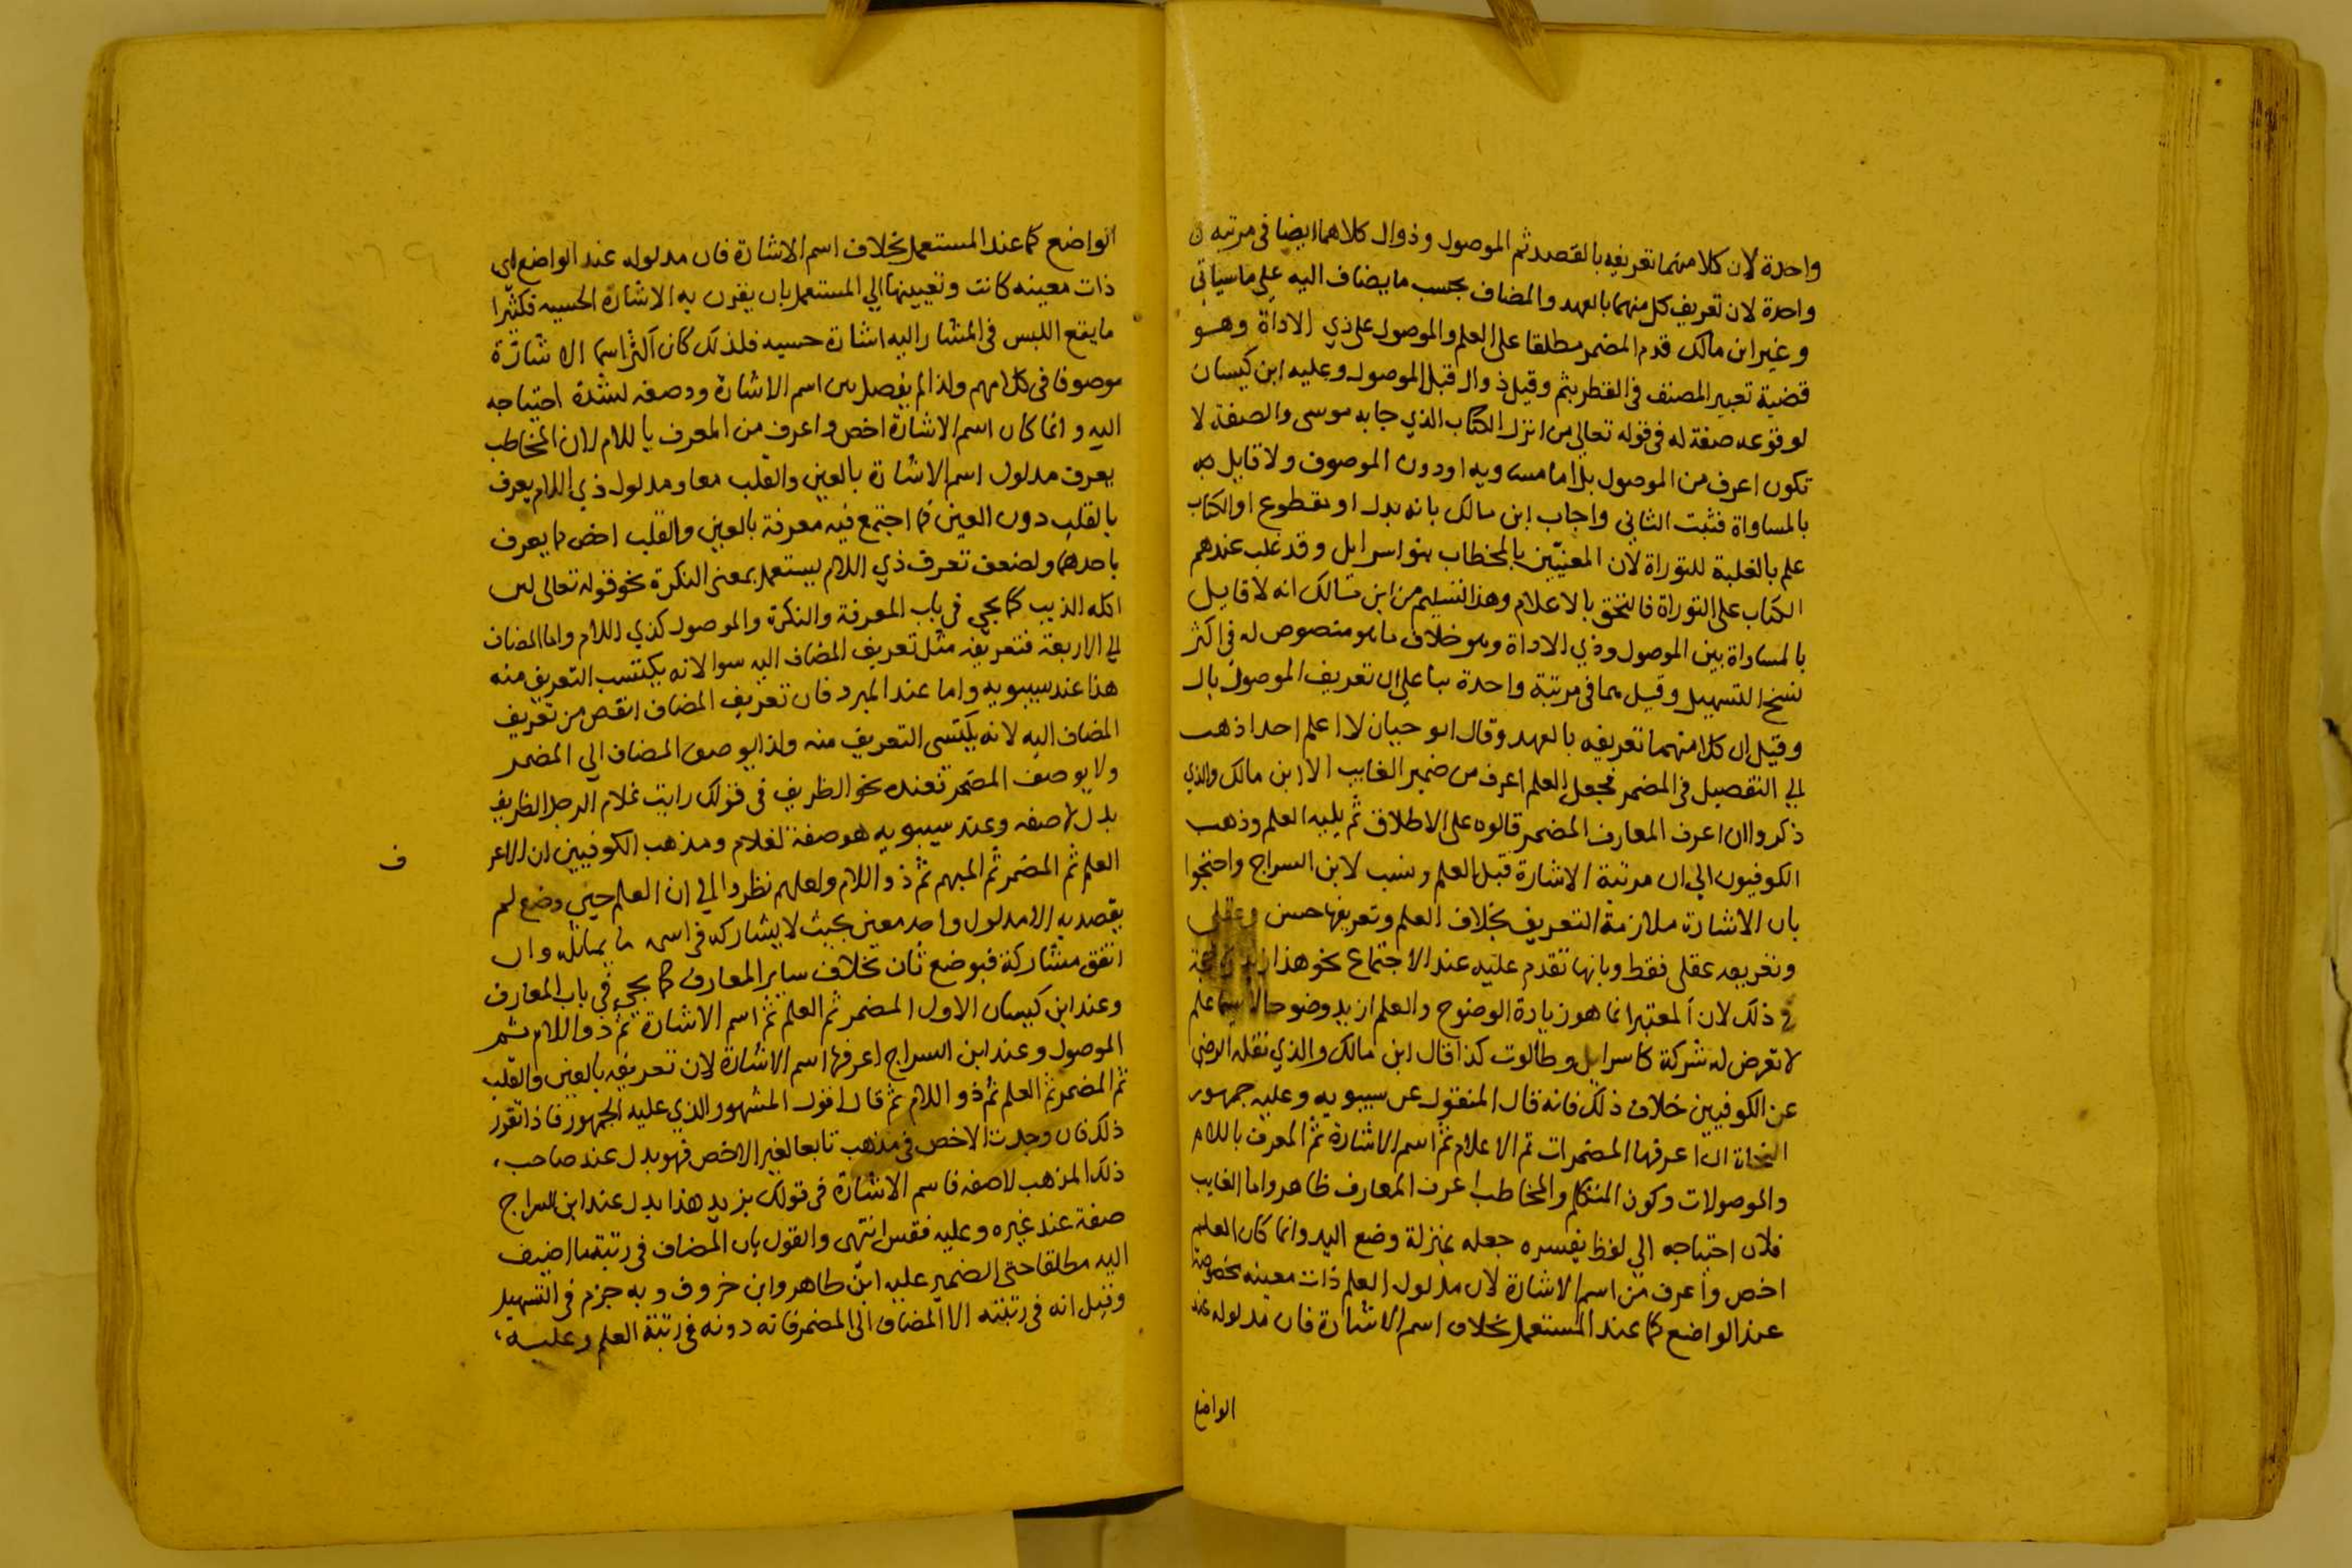 واحدة لان كلا منهما تعريفه بالقصد ثم الموصول وذو ال كلاهما ايضا في مرتبة
واحدة لان تعريف كل منهما بالعهد والمضاف بحسب ما يضاف اليه على ما سياتي
وغير ابن مالك قدم المضمر مطلقا على العلم والموصول على ذي الاداة وهو
قضية تعبير المصنف في القطر بثم وقيل ذو ال قبل الموصول وعليه ابن كيسان
لوقوعه صفة له في قوله تعالى من انزل الكتاب الذي جا به موسى والصفة لا
تكون اعرف من الموصول بل اما مساويه او دون الموصوف ولا قايل به
بالمساواة فثبت الثاني واجاب ابن مالك بانه بدل او مقطوع او الكتاب
علم بالغلبة للتوراة لان المعنيين بالخطاب بنو اسرايل وقد غلب عندهم
الكتاب على التوراة فالتحق بالاعلام وهذا التسليم من ابن مالك انه لا قايل
بالمساداة بين الموصول وذي الاداة وهو خلاف ما هو منصوص له في اكثر
نسخ التسهيل وقيل هما في مرتبة واحدة بنا على ان تعريف الموصول بال
وقيل ان كلا منهما تعريفه بالعهد وقال ابو حيان لا اعلم احدا ذهب
الي التفصيل في المضمر فجعل العلم اعرف من ضمير الغايب الا ابن مالك والذي
ذكروا ان اعرف المعارف المضمر قالوه على الاطلاق ثم يليه العلم وذهب
الكوفيون الي ان مرتبة الاشارة قبل العلم ونسب لابن السراج واحتجوا
بان الاشارة ملازمة التعريف بخلاف العلم وتعريفها حسى وعقلى
وتعريفه عقلى فقط وبانها تقدم عليه عند الاجتماع نحو هذا
في ذلك لان المعتبر انما هو زيادة الوضوح والعلم ازيد وضوحا لا سيما علم
لا تعرض له شركة كاسرايل وطالوت كذا قال ابن مالك والذي نقله الرضي
عن الكوفيين خلاف ذلك فانه قال المنقول عن سيبويه وعليه جمهور
النحاة ان اعرفها المضمرات ثم الاعلام ثم اسم الاشارة ثم المعرف باللام
والموصولات وكون المتكلم والمخاطب اعرف المعارف ظاهر واما الغايب
فلان احتياجه الي لفظ يفسره جعله بمنزلة وضع اليد وانما كان العلم
اخص واعرف من اسم الاشارة لان مدلول العلم ذات معينه مخصوصة
عند الواضع كما عند المستعمل بخلاف اسم الاشارة فان مدلوله عند
الواضع
الواضع كما عند المستعمل بخلاف اسم الاشارة فان مدلوله عند الواضع اي
ذات معينه كانت وتعيينها الي المستعمل بان يقرن به الاشارة الحسيه فكثيرا
ما يقع اللبس في المشار اليه اشارة حسيه فلذلك كان اكثر اسما الاشارة
موصوفا في كلامهم ولذا لم يفصل بين اسم الاشارة ووصفه لشدة احتياجه
اليه وانما كان اسم الاشارة اخص واعرف من المعرف باللام لان المخاطب
يعرف مدلول اسم الاشارة بالعين والقلب معا ومدلول ذي اللام يعرف
بالقلب دون العين فما اجتمع فيه معرفة بالعين والقلب اخص مما يعرف
باحدهما ولضعف تعرف ذي اللام يستعمل بمعنى النكرة نحو قوله تعالى لين
اكله الذيب كما يجي في باب المعرفة والنكرة والموصول كذي اللام واما المضاف
الي الاربعة فتعريفه مثل تعريف المضاف اليه سوا لانه يكتسب التعريف منه
هذا عند سيبويه واما عند المبرد فان تعريف المضاف انقص من تعريف
المضاف اليه لانه يكتسي التعريف منه ولذا يوصف المضاف الي المضمر
ولا يوصف المضمر فعنده نحو الظريف في قولك رايت غلام الرجل الظريف
بدل لا صفه وعند سيبويه هو صفة لغلام ومذهب الكوفيين ان الاعر
ف
العلم ثم المضمر ثم المبهم ثم ذو اللام ولعلهم نظروا الي ان العلم حين وضع لم
يقصد به الا مدلول واحد معين بحيث لا يشاركه في اسمه ما يماثله وان
اتفق مشاركة فبوضع ثان بخلاف ساير المعارف كما يجيء في باب المعارف
وعند ابن كيسان الاول المضمر ثم العلم ثم اسم الاشارة ثم ذو اللام ثم
الموصول وعند ابن السراج اعرفها اسم الاشارة لان تعريفه بالعين والقلب
ثم المضمر ثم العلم ثم ذو اللام ثم قال اقول المشهور الذي عليه الجمهور فاذا تقرر
ذلك فان وجدت الاخص في مذهب تابعا لغير الاخص فهو بدل عند صاحب
ذلك المذهب لا صفه فاسم الاشارة في قولك بزيد هذا بدل عند ابن السراج
صفة عند غيره وعليه فقس انتهى والقول بان المضاف في رتبة ما اضيف
اليه مطلقا حتى الضمير عليه ابن طاهر وابن خروف وبه جزم في التسهيل
وقيل انه في رتبته الا المضاف الى المضمر فانه دونه في رتبة العلم وعليه